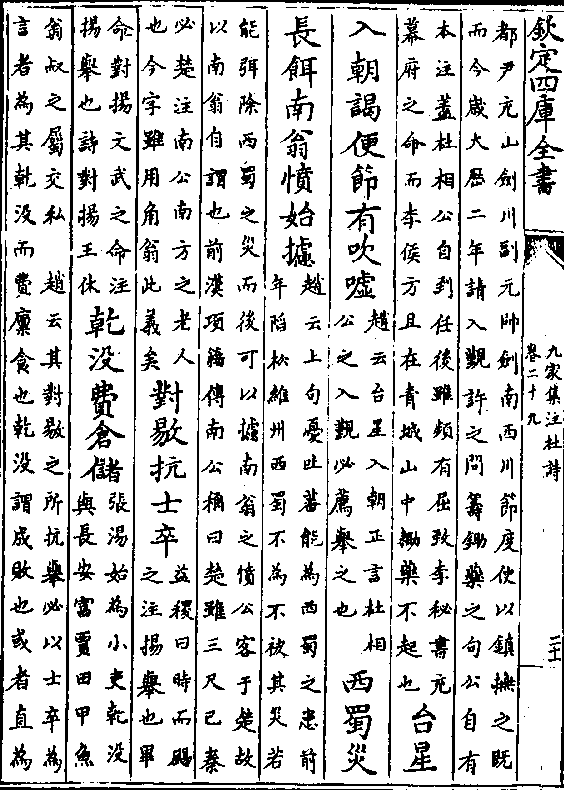 欽定四庫全書
九家集注杜詩
卷二十九
二十一
都尹充山劍川副元帥劍南西川節度使以鎮撫之既
而今歲大厯二年請入覲許之問籌鋤藥之句公自有
本注蓋杜相公自到任後雖頻有屈致李秘書充
幕府之命而李侯方且在青城山中鋤藥不起也
台星
入朝謁使節有吹噓
趙云台星入朝正言杜相
公之入覲必薦舉之也
西蜀災
長餌南翁憤始攄
趙云上句憂吐蕃能為西蜀之患前
年陷松維州西蜀不為不被其災若
能弭除西蜀之災而後可以攄南翁之憤公客于楚故
以南翁自謂也前漢項籍傳南公稱曰楚雖三尺已秦
必楚注南公南方之老人
也今字雖用角翁此義矣
對敭抗士卒
益稷曰時而颺
之注揚舉也畢
命對揚文武之命注
揚舉也詩對揚王休
乾没費倉儲
張湯始為小吏乾没
與長安富賈田甲魚
翁叔之屬交私
趙云其對敭之所抗舉必以士卒為
言者為其乾没而費廩食也乾没謂成敗也或者直為